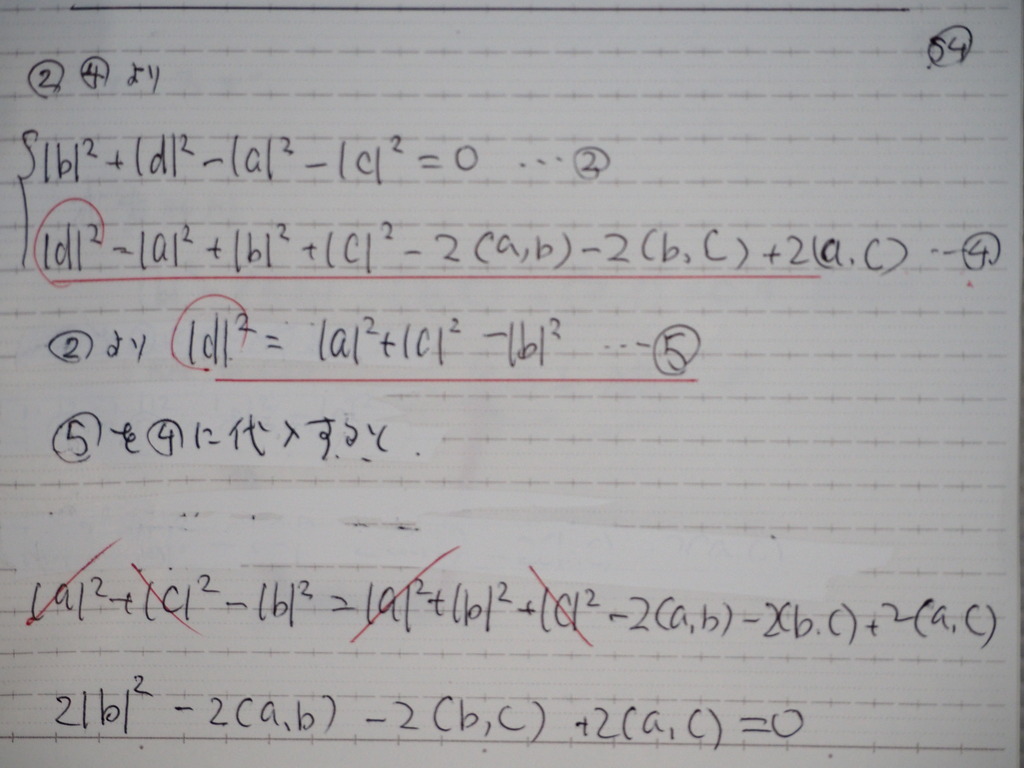 54
②④より
|b|² + |d|² - |a|² - |c|² = 0 … ②
|d|² - |a|² + |b|² + |c|² - 2(a,b) - 2(b,c) + 2(a,c) … ④
②より |d|² = |a|² + |c|² - |b|² … ⑤
⑤を④に代入すると.
|a|² + |c|² - |b|² = |a|² + |b|² + |c|² - 2(a,b) - 2(b.c) + 2(a,c)
2|b|² - 2(a,b) - 2(b,c) + 2(a,c) = 0